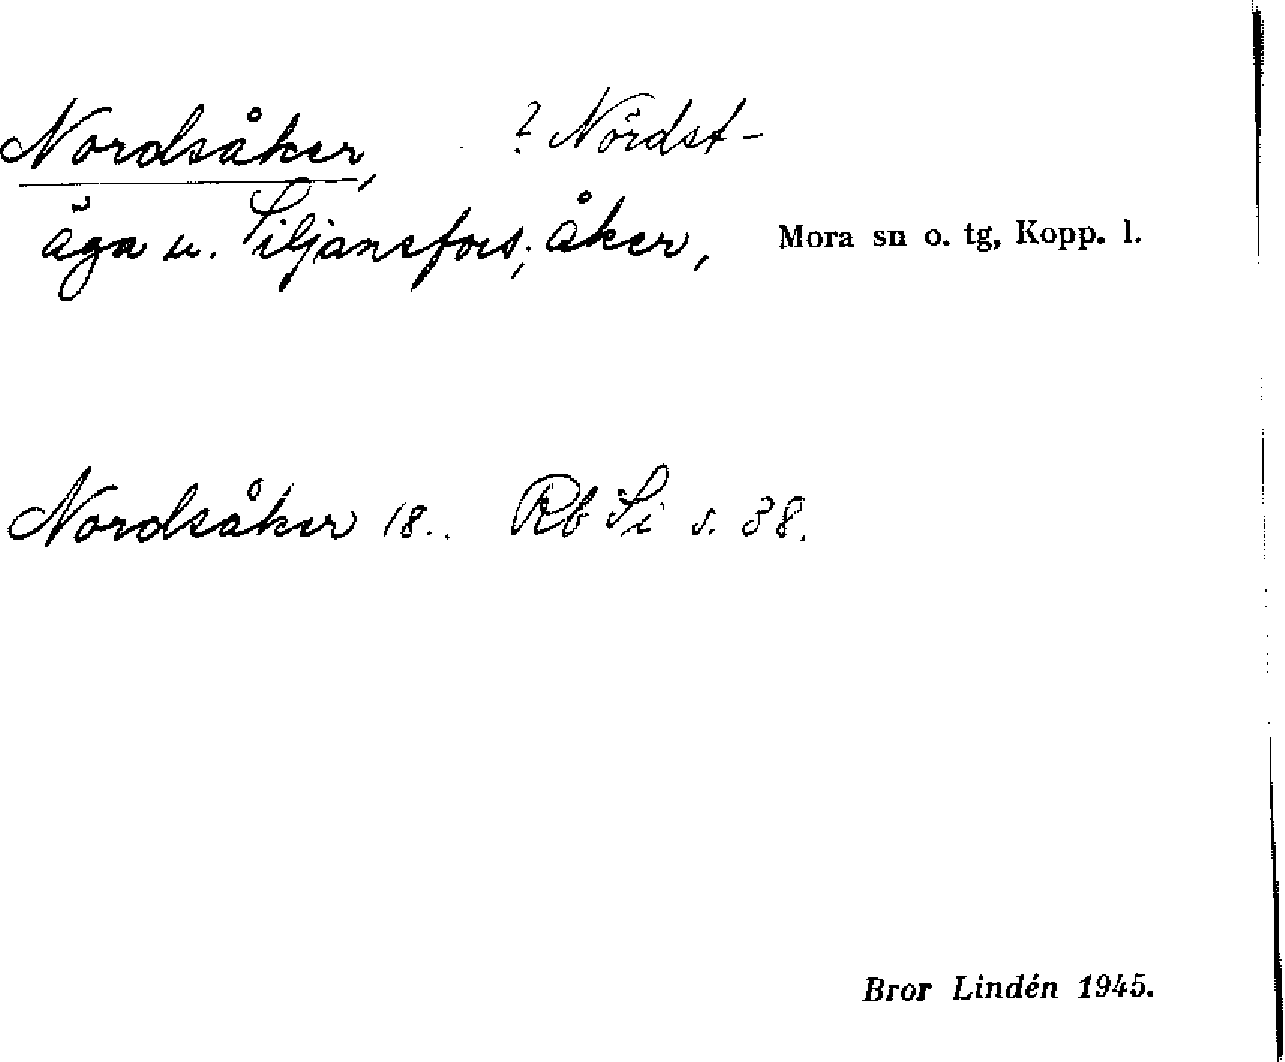 Nordsåker, ? Nördst-
äga u. Siljansfors; åker, Mora sn o. tg, Kopp. l.
Nordsåker 18.. Rb Si s. 38.
Bror Lindén 1945.